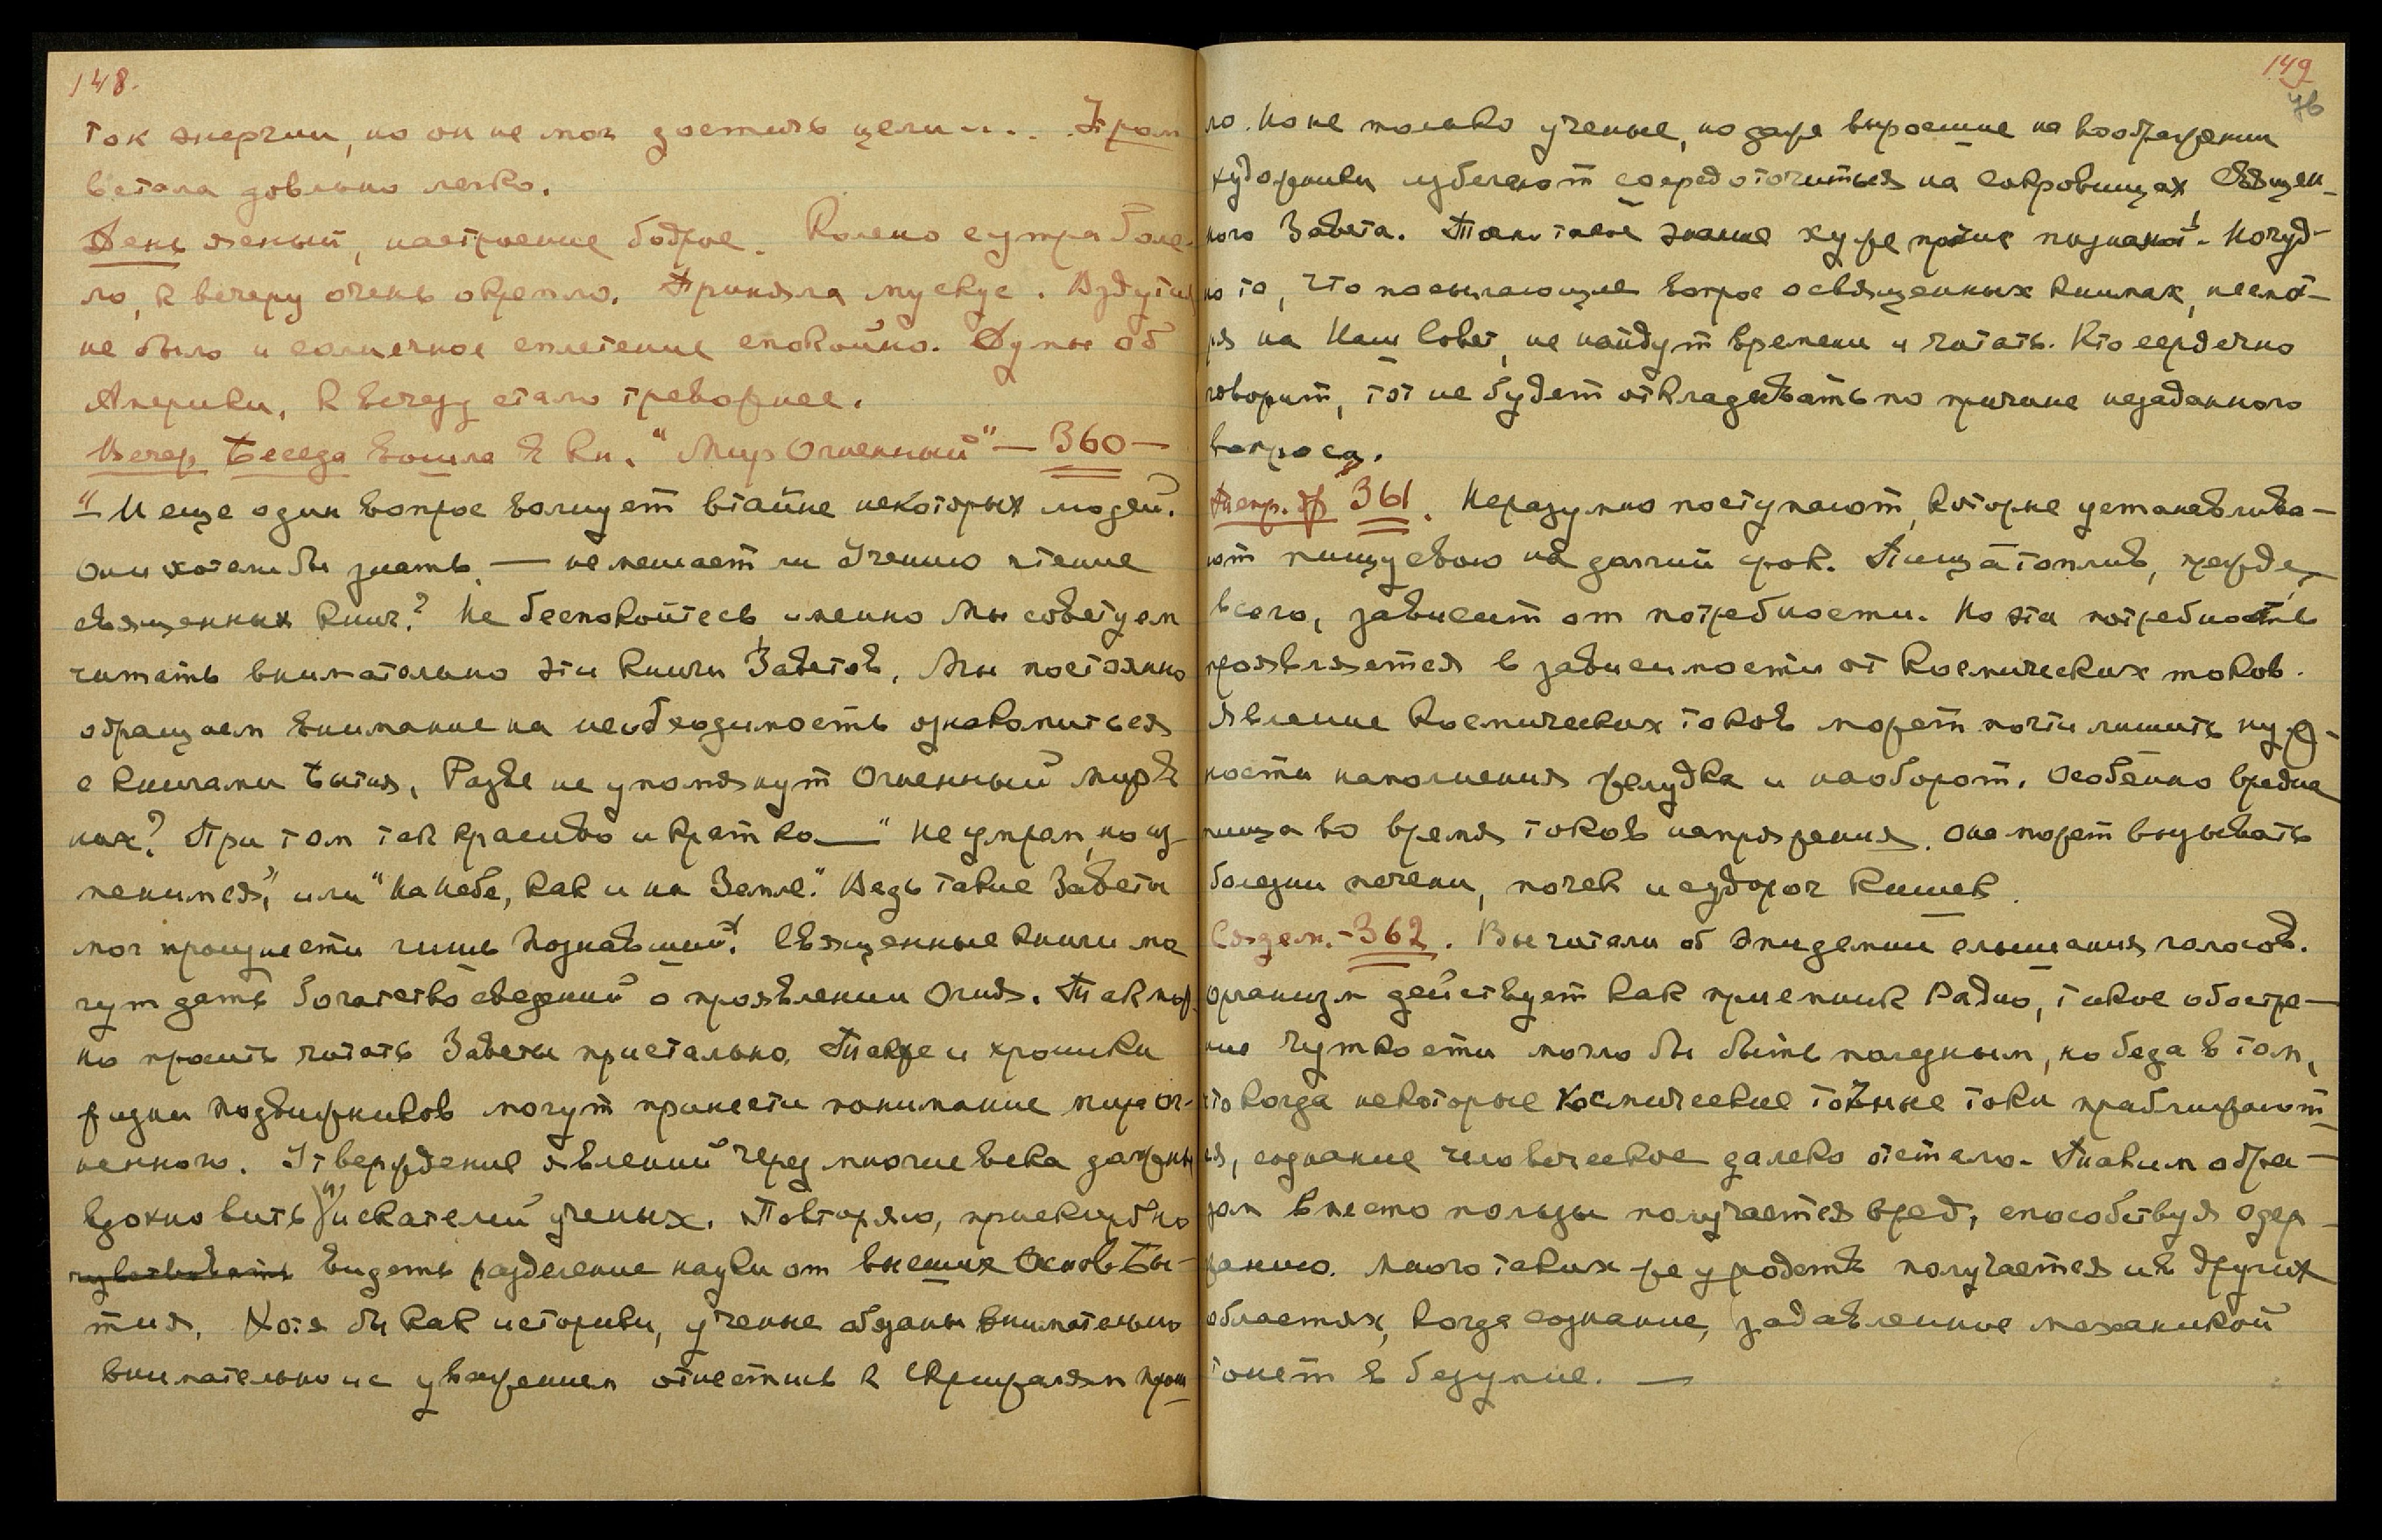 148.
ток энергии, но он не мог достичь цели.... Утром
встала довольно легко.
День ясный, настроение бодрое. Колено с утра боле-
ло, к вечеру очень окрепло. Приняла мускус. Вздутия
не было и солнечное сплетение спокойно. Думы об
Америки, к вечеру стало тревожнее.
Вечер. Беседа вошла в Кн. "Мир Огненный" — 360 —
"И еще один вопрос волнует втайне некоторых людей.
Они хотели бы знать, — не мешает ли Учению чтение
священных книг? Не беспокойтесь именно Мы советуем
читать внимательно эти книги Заветов. Мы постоянно
обращаем внимание на необходимость ознакомиться
с книгами Бытия. Разве не упомянут Огненный мир в
них? При том так красиво и кратко — "Не умрем, но из-
менимся," или "На Небе, как и на Земле." Ведь такие Заветы
мог произнести лишь Познавший! Священные книги мо
гут дать богатство сведений о проявлении Огня. Так мож
но просить читать Заветы пристально. Также и хроники
жизни подвижников могут принести понимание мира Ог-
ненного. Утверждение явлений через многие века должны
вдохновить и искателей ученых. Повторяю, прискорбно
чувствовать видеть разделение науки от высших Основ Бы-
тия. Хотя бы как историки, ученые обязаны внимательно
внимательно и с уважением отнестись к скрижалям прош
149
76
ло. Но не только ученые, но даже выросшие на воображении
художники избегают сосредоточиться на сокровищах Священ-
ного Завета. Точно такое знание хуже прочих познаний. Не чуд-
но то, что посылающие вопрос о священных книгах, несмот-
ря на Наш Совет, не найдут времени и читать. Кто сердечно
говорит, тот не будет откладывать по причине незаданного
вопроса.
361. Неразумно поступают, которые устанавлива-
ют пищу свою на долгий срок. Пища топлив, прежде
всего, зависит от потребности. Но эта потребность
проявляется в зависимости от космических токов.
Явление космических токов может почти лишить нуж-
ности наполнения желудка и наоборот. Особенно вредна
пища во время токов напряжения. Она может вызывать
болезни печени, почек и судорог кишек.
Создам. - 362. Вы читали об эпидемии слышания голосов.
Организм действует как приемник Радио, такое обостре-
ние чуткости могло бы быть полезным, но беда в том,
что когда некоторые космические точные токи приближают-
ся, сознание человеческое далеко отстало. Таким обра-
зом вместо пользы получается вред, способствуя одер-
жанию. Много таких же уродств получается и в других
областях, когда сознание, задавленное механикой
тонет в безумие. —